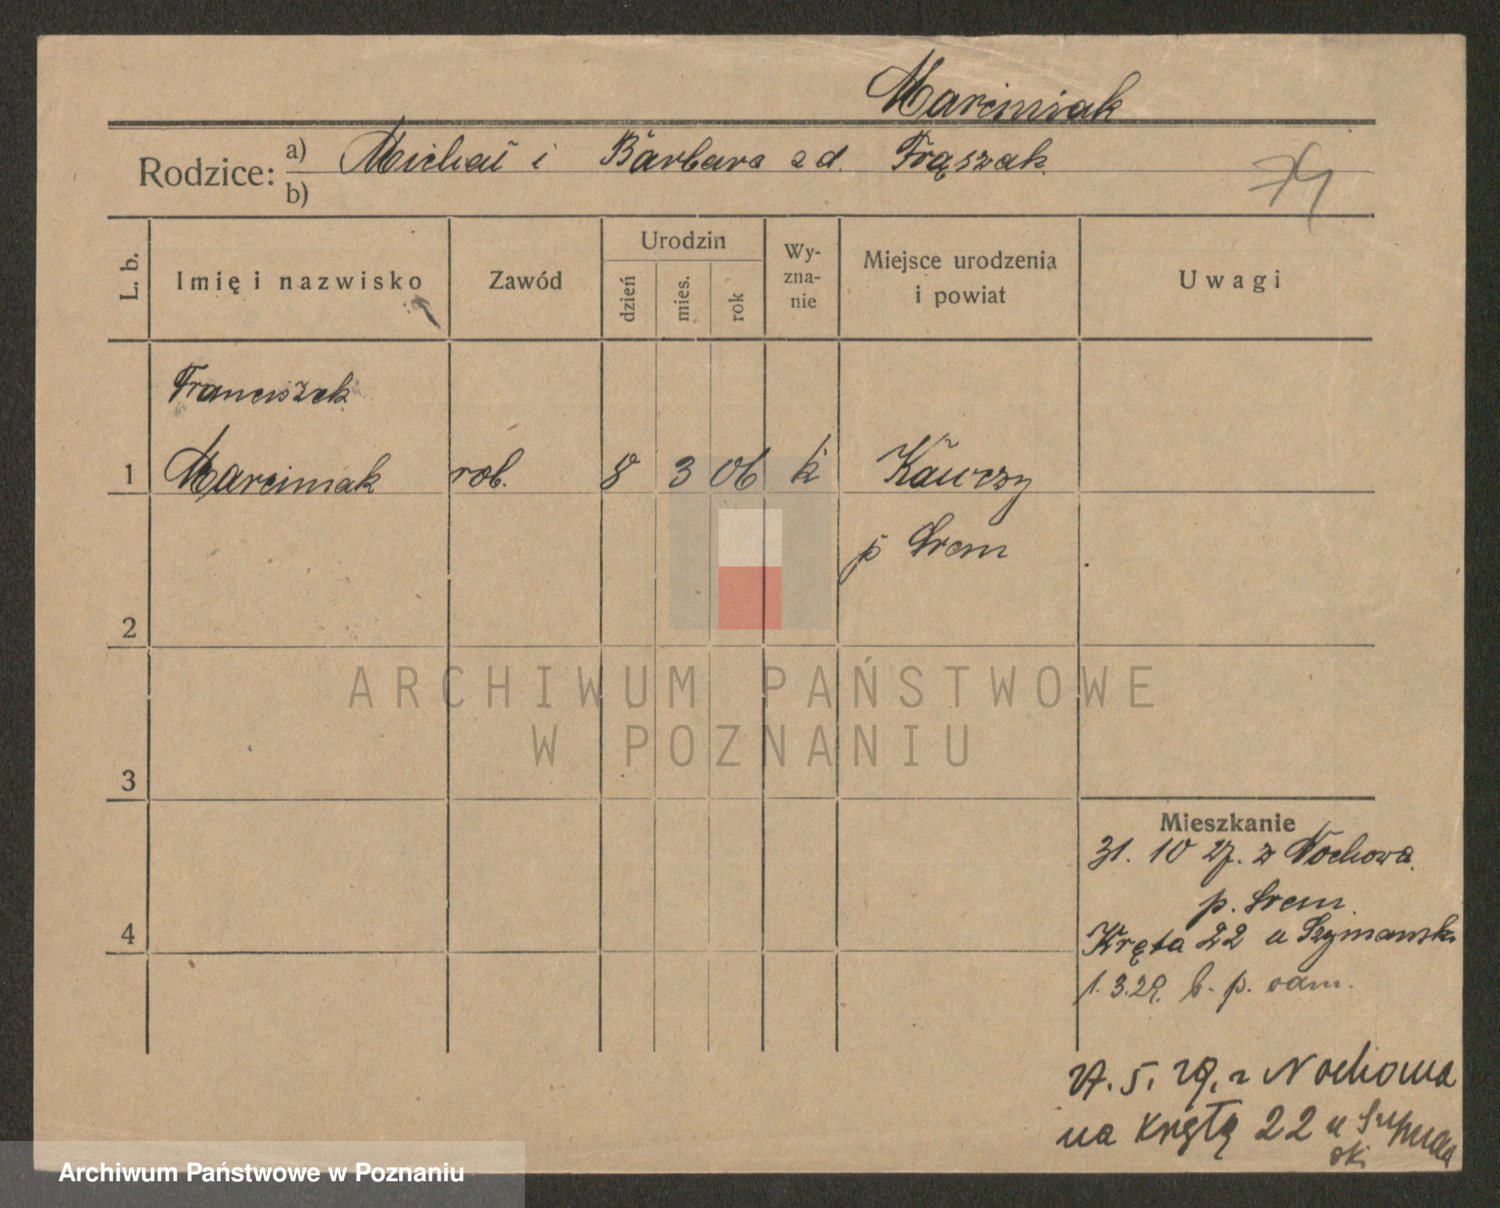 Marciniak
Rodzice: a) Michał i Barbara z d. Frąszak
b)
74
L. b. Imię i nazwisko Zawód Urodzin dzień mies. rok Wy-zna-nie Miejsce urodzenia i powiat Uwagi
Franciszek
1 Marciniak rob. 8 3 06 k Kawczy
p Śrem
2
ARCHIWUM PAŃSTWOWE
W POZNANIU
3
Mieszkanie
31. 10 27. z Nochowa
p. Śrem.
4
Kręta 22 u Szymańsk.
1.3.29. b. p. odm.
5. 29. z Nochowa
na Krętą 22 u Szymań
ski
Archiwum Państwowe w Poznaniu